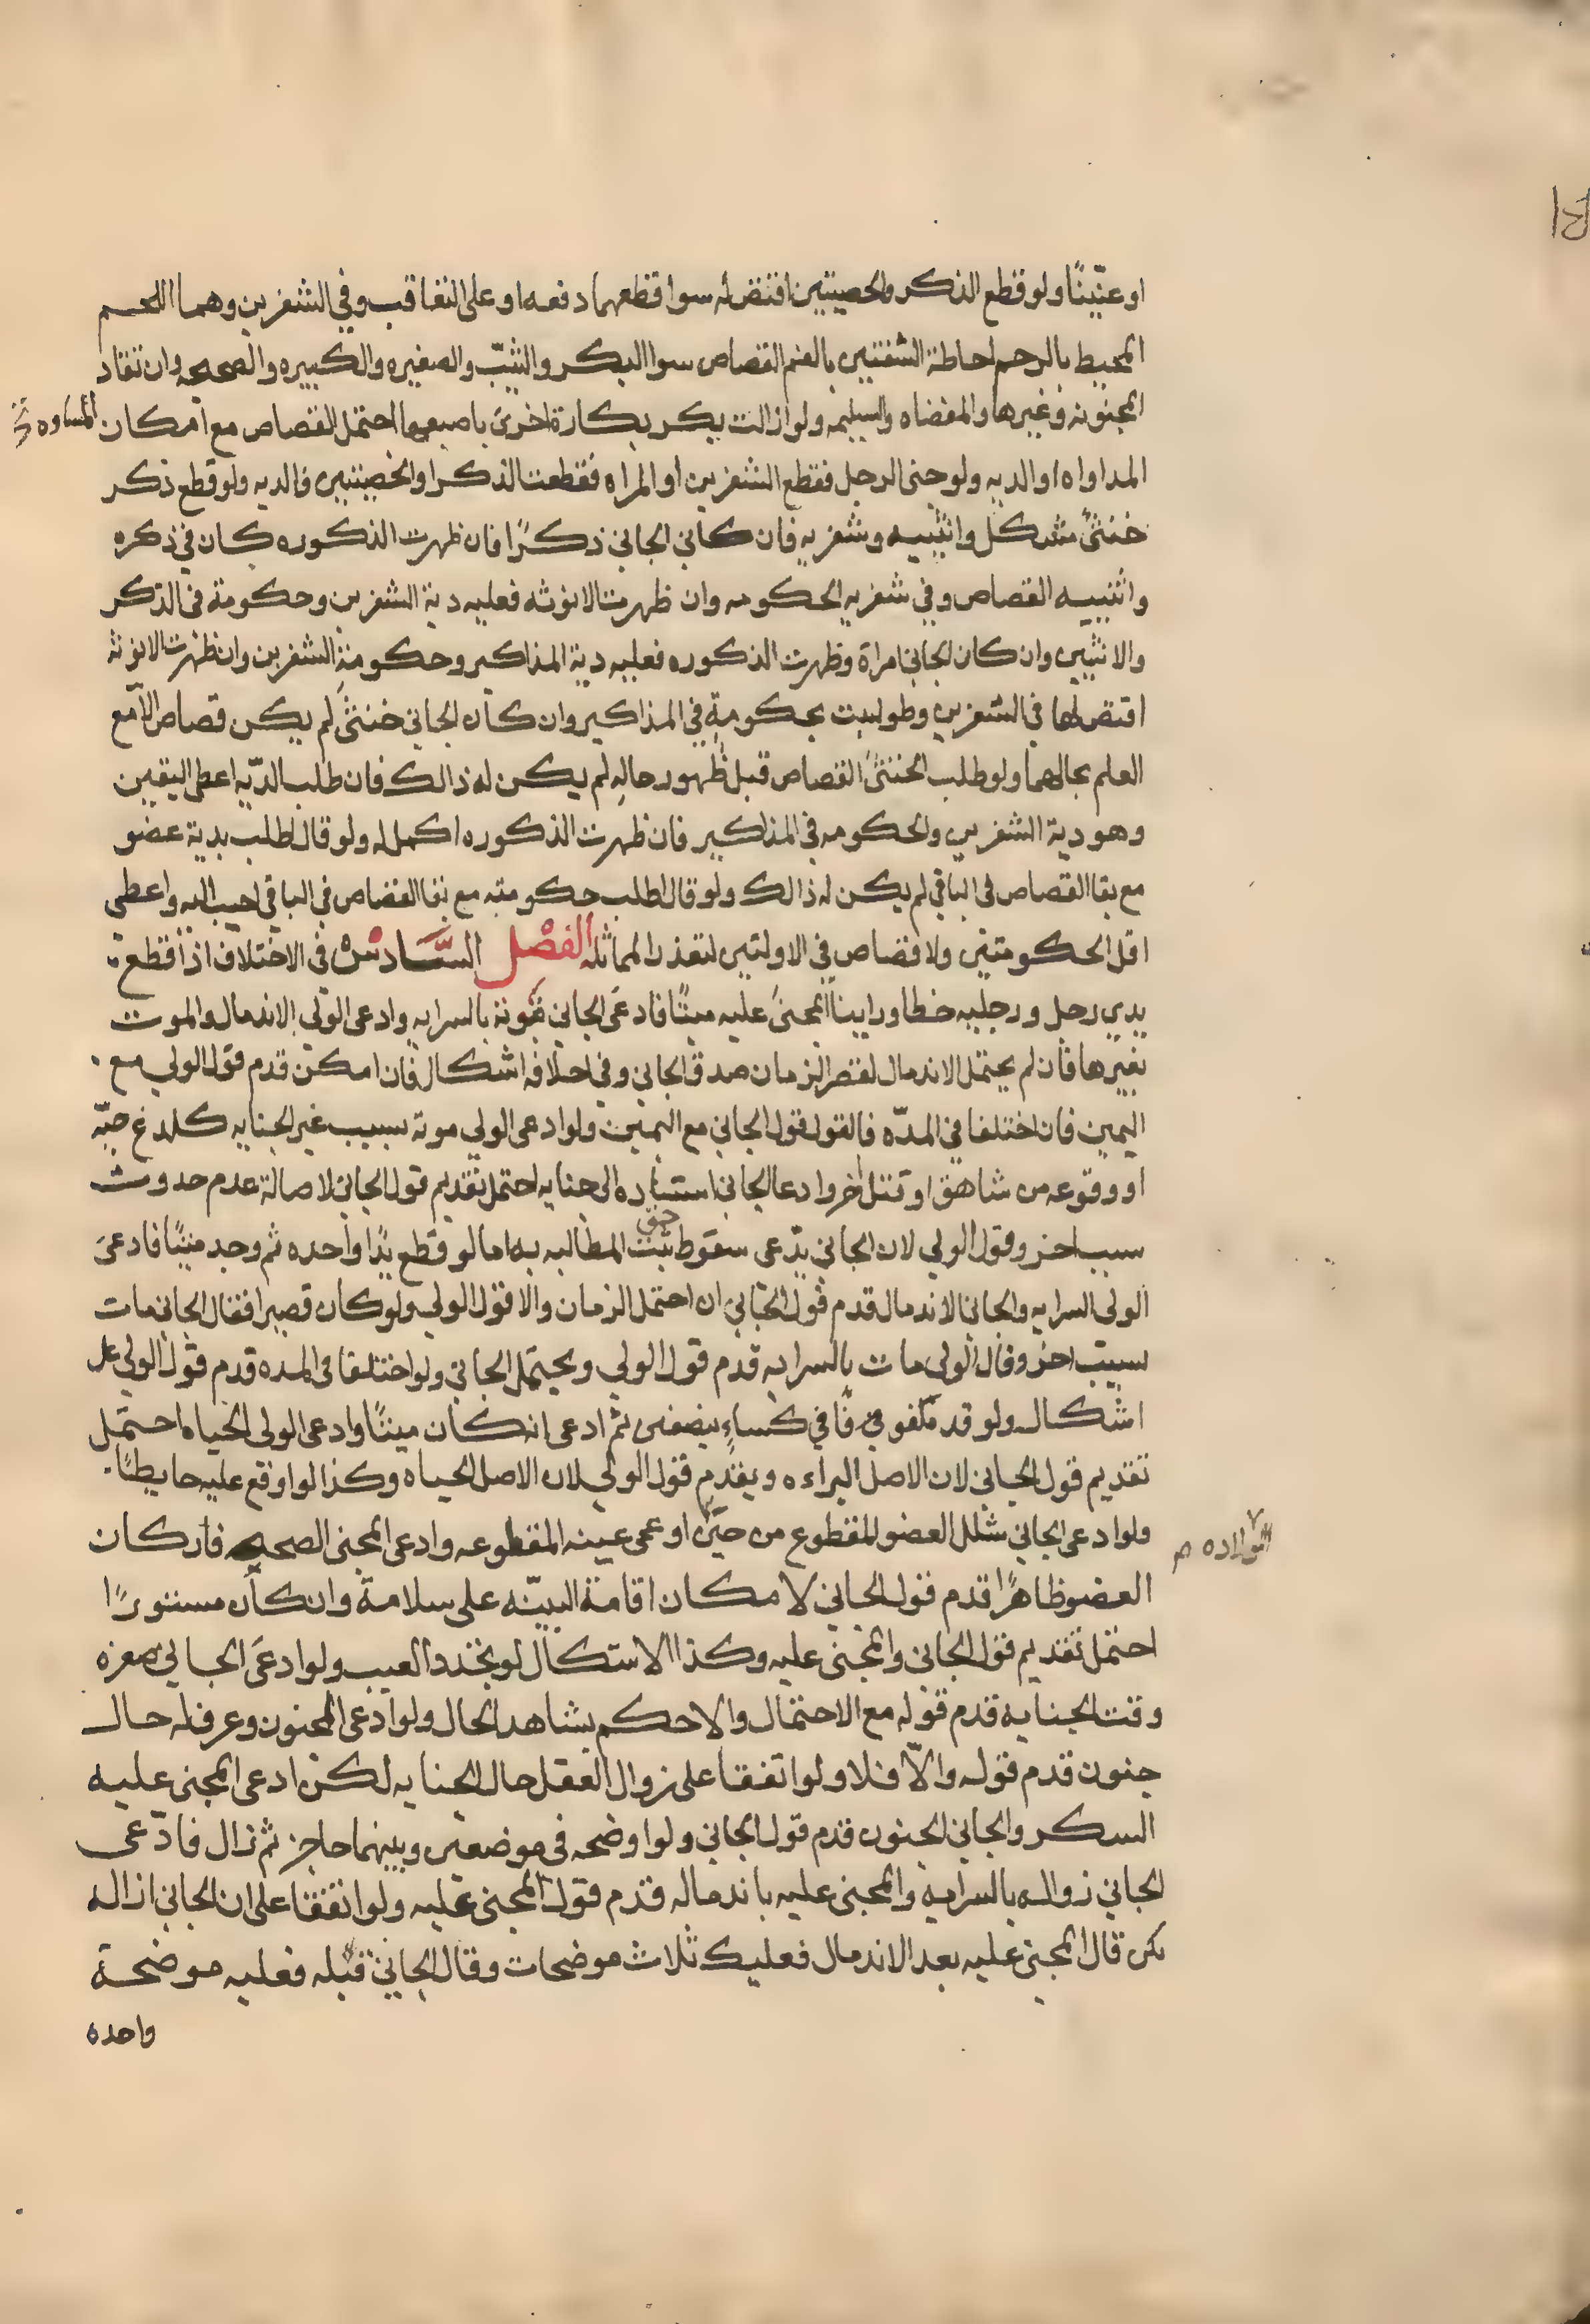 او عنّينًا ولو قطع الذكر والخصيتين اقتص له سوا قطعهما دفعه او على التعاقب وفي الشفرين وهما اللحم
المحيط بالرحم احاطة الشفتين بالفم القصاص سوا البكر والثيّب والصغيره والكبيره والصحيحه وان تقاد
المجنونه وغيرها والمفضاه والسليمه ولو ازالت بكر بكارة اخرى باصبعها احتمل القصاص مع امكان المساوه
المداواه او الديه ولو جنى الرجل فقطع الشفرين او المراه فقطعت الذكر او الخصيتين فالديه ولو قطع ذكر
خنثىً مشكل وانثييه وشفريه فان كان الجاني ذكرًا فان ظهرت الذكوره كان في ذكره
وانثييه القصاص وفي شفريه الحكومه وان ظهرت الانوثه فعليه دية الشفرين وحكومة في الذكر
والانثيين وان كان الجاني امراة وظهرت الذكوره فعليه دية المذاكير وحكومة الشفرين وان ظهرت الانوثة
اقتص لها في الشفرين وطولبت بحكومةٍ في المذاكير وان كان الجاني خنثىً لم يكن قصاص الّا مع
العلم بحالهما ولو طلب الخنثىً القصاص قبل ظهور حاله لم يكن له ذالك فان طلب الدّيه اعطى اليقين
وهو دية الشفرين والحكومه في المذاكير فان ظهرت الذكوره اكمل له ولو قال اطلب بدية عضو
مع بقا القصاص في الباقي لم يكن له ذالك ولو قال اطلب حكومته مع بقا القصاص في الباقي اجيب اليه واعطي
اقل الحكومتين ولا قصاص في الاولتين لتعذر المماثله الفصْل السَّادسْ في الاختلاف اذا قطع
يدي رجل ورجليه خطا وراينا المجنىَ عليه ميتًا فادعىَ الجاني موته بالسرايه وادعى الولي الاندمال والموت
بغيرها فان لم يحتمل الاندمال لقصر الزمان صدق الجاني وفي احلافه اشكال فان امكن قدم قول الولي مع
اليمين فان اختلفا في المدّه فالقول قول الجاني مع اليمين ولو ادعى الولي موته بسبب غير الجنايه كلدغ حيّه
او وقوعه من شاهق او قتل اخر وادعا الجاني استناده الى جنايه احتمل تقديم قول الجاني لاصالة عدم حدوث
سبب اخر وقول الولي لان الجاني يدّعى سقوط حق ثبت المطالبه به اما لو قطع يدًا واحده ثم وجد ميتًا فادعىَ
الولى السرايه والجاني الاندمال قدم قول الجاني ان احتمل الزمان والا قول الولي ولو كان قصيرا فقال الجاني مات
بسبب اخر وقال الولي مات بالسرايه قدم قول الولي ويحتمل الجاني ولو اختلفا في المده قدم قول الولي على
اشكال ولو قد ملفوفًا في كساءٍ بنصفين ثم ادعى انه كان ميتًا وادعى الولى الحياه احتمل
تقديم قول الجاني لان الاصل البراءه ويقدم قول الولي لان الاصل الحياه وكذا لو اوقع عليه حايطًا
ولو ادعى الجاني شلل العضو المقطوع من حيّ او عمى عينه المقطوعه وادعى المجنى الصحه فان كان
العضو ظاهرًا قدم قول الجاني لامكان اقامة البيّنه على سلامة وان كان مستورًا
احتمل تقديم قول الجاني والمجني عليه وكذا الاشكال لو تجدد العيب ولو ادعىَ الجاني صغره
وقت الجنايه قدم قوله مع الاحتمال والا حكم بشاهد الحال ولو ادعى الجنون وعرف له حال
جنون قدم قوله والّا فلا ولو اتفقا على زوال العقل حال الجنايه لكن ادعى المجنى عليه
السكر والجاني الجنون قدم قول الجاني ولو اوضحه في موضعين وبينهما حاجز ثم زال فادّعى
الجاني زواله بالسرايه والمجنى عليه بازالته قدم قول المجنى عليه ولو اتفقا على ان الجاني ازاله
لكن قال المجنى عليه بعد الاندمال فعليك ثلاث موضحات وقال الجاني قبله فعليه موضحة
واحده